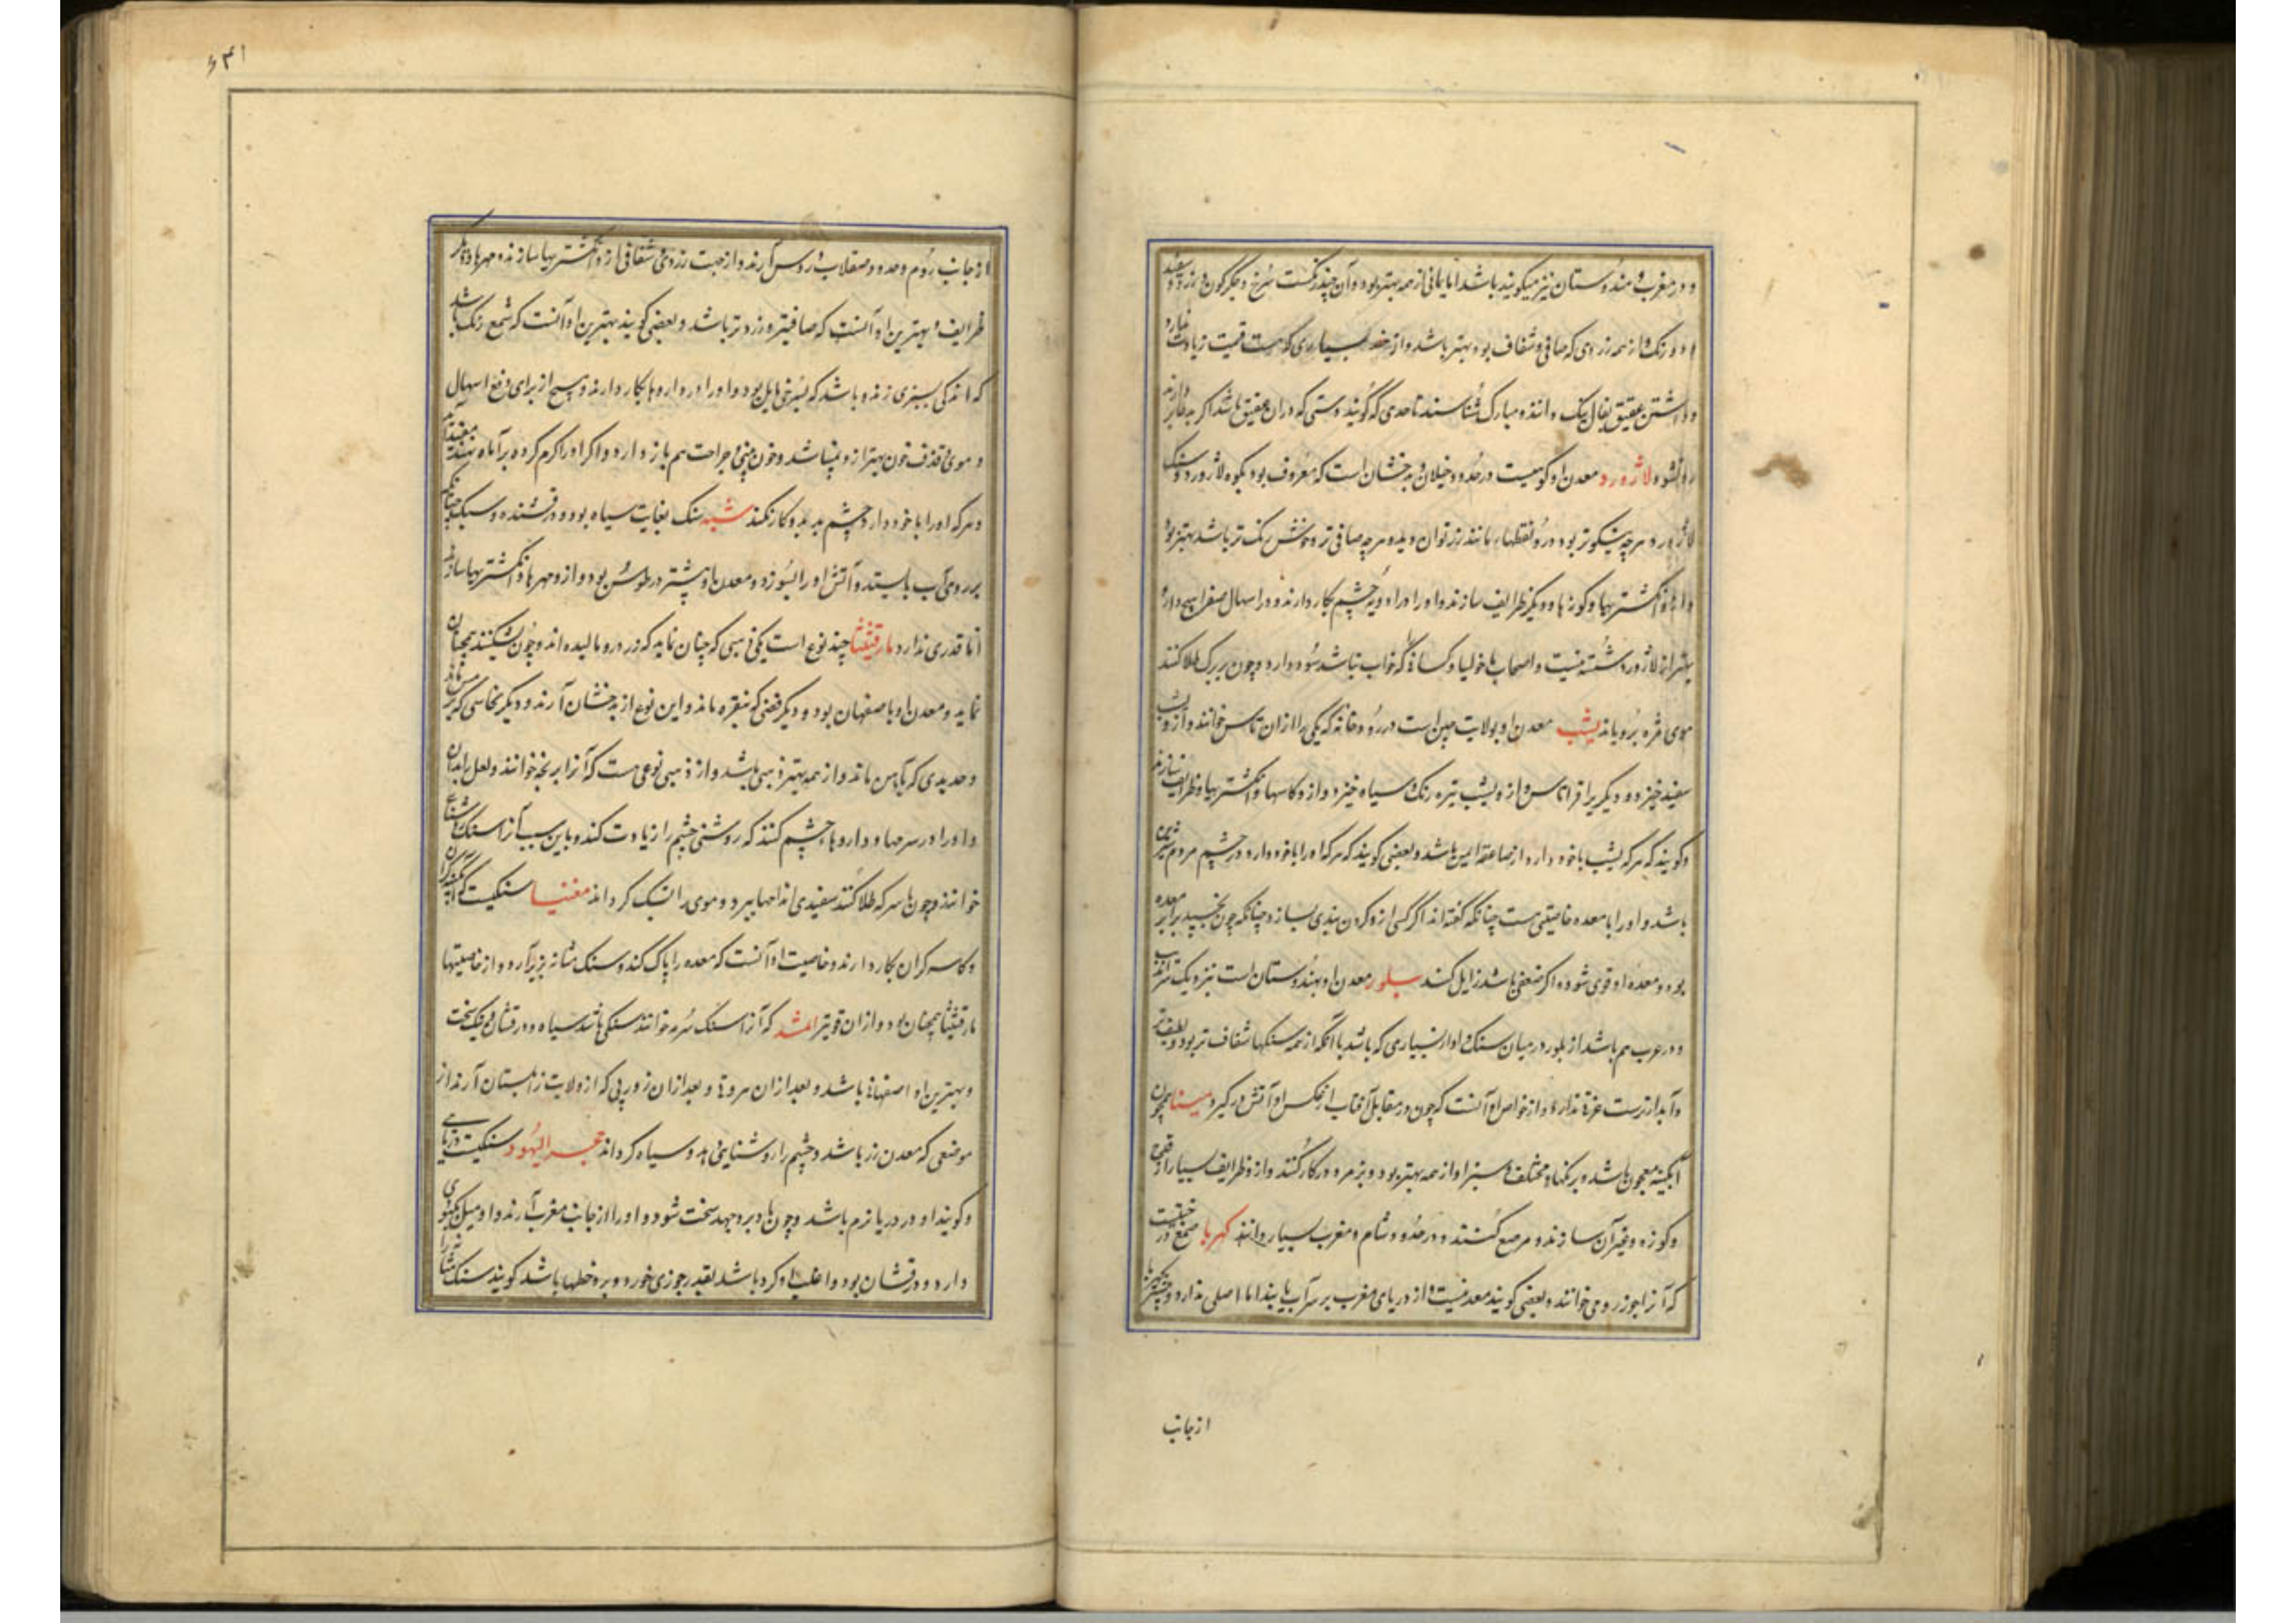 و در مغرب و هندوستان نیز میگویند باشد اما یمانی از همه بهتر بود و آن چند رنگست سرخ و جگرگون و زرد و سفید
و دو رنگ و از همه زردی که صافی و شفاف بود بهتر باشد و از بسیاری که هست قیمت زیادت ندارد
و داشتن عقیق بفال نیک دانند و مبارک شناسند تا حدی که گویند دستی که در آن عقیق باشد اگر به دارند
روا شود لاژورد معدن او کوهیست در حدود ختلان و بدخشان است که معروف بود بکوه لاژورد و سنگ
لاژورد هر چه نیکوتر بود درو نقطها مانند زر توان دید و هر چه صافی تر و خوش رنگ تر باشد بهتر بود
و از و انگشتریها و کوزها و دیگر ظرایف سازند و او را در ادویه چشم بکار دارند و در اسهال صفرا هیچ دارو
بهتر از لاژورد شسته نیست و اصحاب ماخولیا و کسانی که خواب نباشد سود دارد و چون بر برگ طلا کنند
موی مژه برویاند یشب معدن او بولایت چین است در رودخانه که یکی را از آن تاس خوانند و ازو یشب
سفید خیزد و دیگری را قراتاس و ازو یشب تیره رنگ و سیاه خیزد و ازو کاسها و انگشتریها و ظرایف سازند
و گویند که هر که یشب با خود دارد از صاعقه ایمن باشد و بعضی گویند که هر که او را با خود دارد در چشم مردم شیرین
باشد و او را با معده خاصیتی هست چنانکه گفته اند اگر کسی ازو گردن بندی بسازد چنانکه چون بخسپد برابر معده
بود و معده او قوی شود و اگر ضعفی باشد زایل کند بلور معدن او بهندوستان است نزدیک
و در عرب هم باشد از بلور در میان سنگ و او از بسیاری که باشد با آنکه از همه سنگها شفاف تر بود و لطیف تر
و آبدارترست عزتی ندارد و از خواص او آنست که چون در مقابل آفتاب از عکس او آتش در گیرد مینا همچون
آبگینه معجون باشد و برنگهاء مختلف و سبز او از همه بهتر بود و بزمرد در کار کنند و ازو ظرایف بسیار از قدح
و کوزه و غیر آن سازند و مرصع کنند و در حدود شام و مغرب بسیار دانند کهربا صمغ درختیست
که آنرا جوز رومی خوانند و بعضی گویند معدنیست و از دریای مغرب بر سر آب یابند اما اصلی ندارد و بیشتر کهربا
از جانب
۶۴۱
از جانب روم و حدود صقلاب و روس آرند و از جهت زردی و شفافی ازو انگشتریها سازند و مهرها و دیگر
ظرایف و بهترین او آنست که صافیتر و زردتر باشد و بعضی گویند بهترین او آنست که شمع رنگ باشد
که اندکی بسبزی زند و باشد که بسرخی مایل بود و او را در داروها بکار دارند و هیچ از برای دفع اسهال
دموی و قذف خون بهتر ازو نباشد و خون بینی و جراحت هم باز دارد و اگر او را گرم کرده بر آماه نهند مفید آید
و هر که او را با خود دارد چشم بد بدو کار نکند شبه سنگ بغایت سیاه بود و درفشنده و سبک چنانکه
بر روی آب بایستد و آتش او را بسوزد و معدن او بیشتر در طوس بود و ازو مهرها و انگشتریها سازند
اما قدری ندارد مارقشیثا چند نوع است یکی ذهبی که چنان نماید که زر درو مالیده اند و چون بشکنند همچنان
نماید و معدن او باصفهان بود و دیگر فضی که بنقره ماند و این نوع از بدخشان آرند و دیگر نحاسی که بمس ماند
و حدیدی که بآهن ماند و از همه بهتر ذهبی باشد و از ذهبی نوعی هست که آنرا بریخه خوانند و لعل را بدان
و او را در سرمها و داروهاء چشم کنند که روشنی چشم را زیادت کند و باین سبب آنرا سنگ روشنایی
خوانند و چون با سرکه طلا کنند سفیدی اندامها ببرد و موی را تنک گرداند مغنیسا سنگیست که آبگینه گران
و کاسه گران بکار دارند و خاصیت او آنست که معده را پاک کند و سنگ مثانه بریزد و از خاصیتها
مارقشیثا همچنان بود و از آن قویتر اثمد که آنرا سنگ سرمه خوانند سنگی باشد سیاه و درفشان و نیک سخت
و بهترین او اصفهانی باشد و بعد از آن هروی و بعد از آن زورپی که از ولایت زابلستان آرند از
موضعی که معدن زر باشد و چشم را روشنایی دهد و سیاه گرداند حجر الیهود سنگیست دریایی
و گویند او در دریا نرم باشد و چون باد برو جهد سخت شود و او را از جانب مغرب آرند و او میل بکبودی
دارد و درفشان بود و اغلب او گرد باشد بقدر جوزی خرد و برو خطها باشد گویند سنگ مثانه را